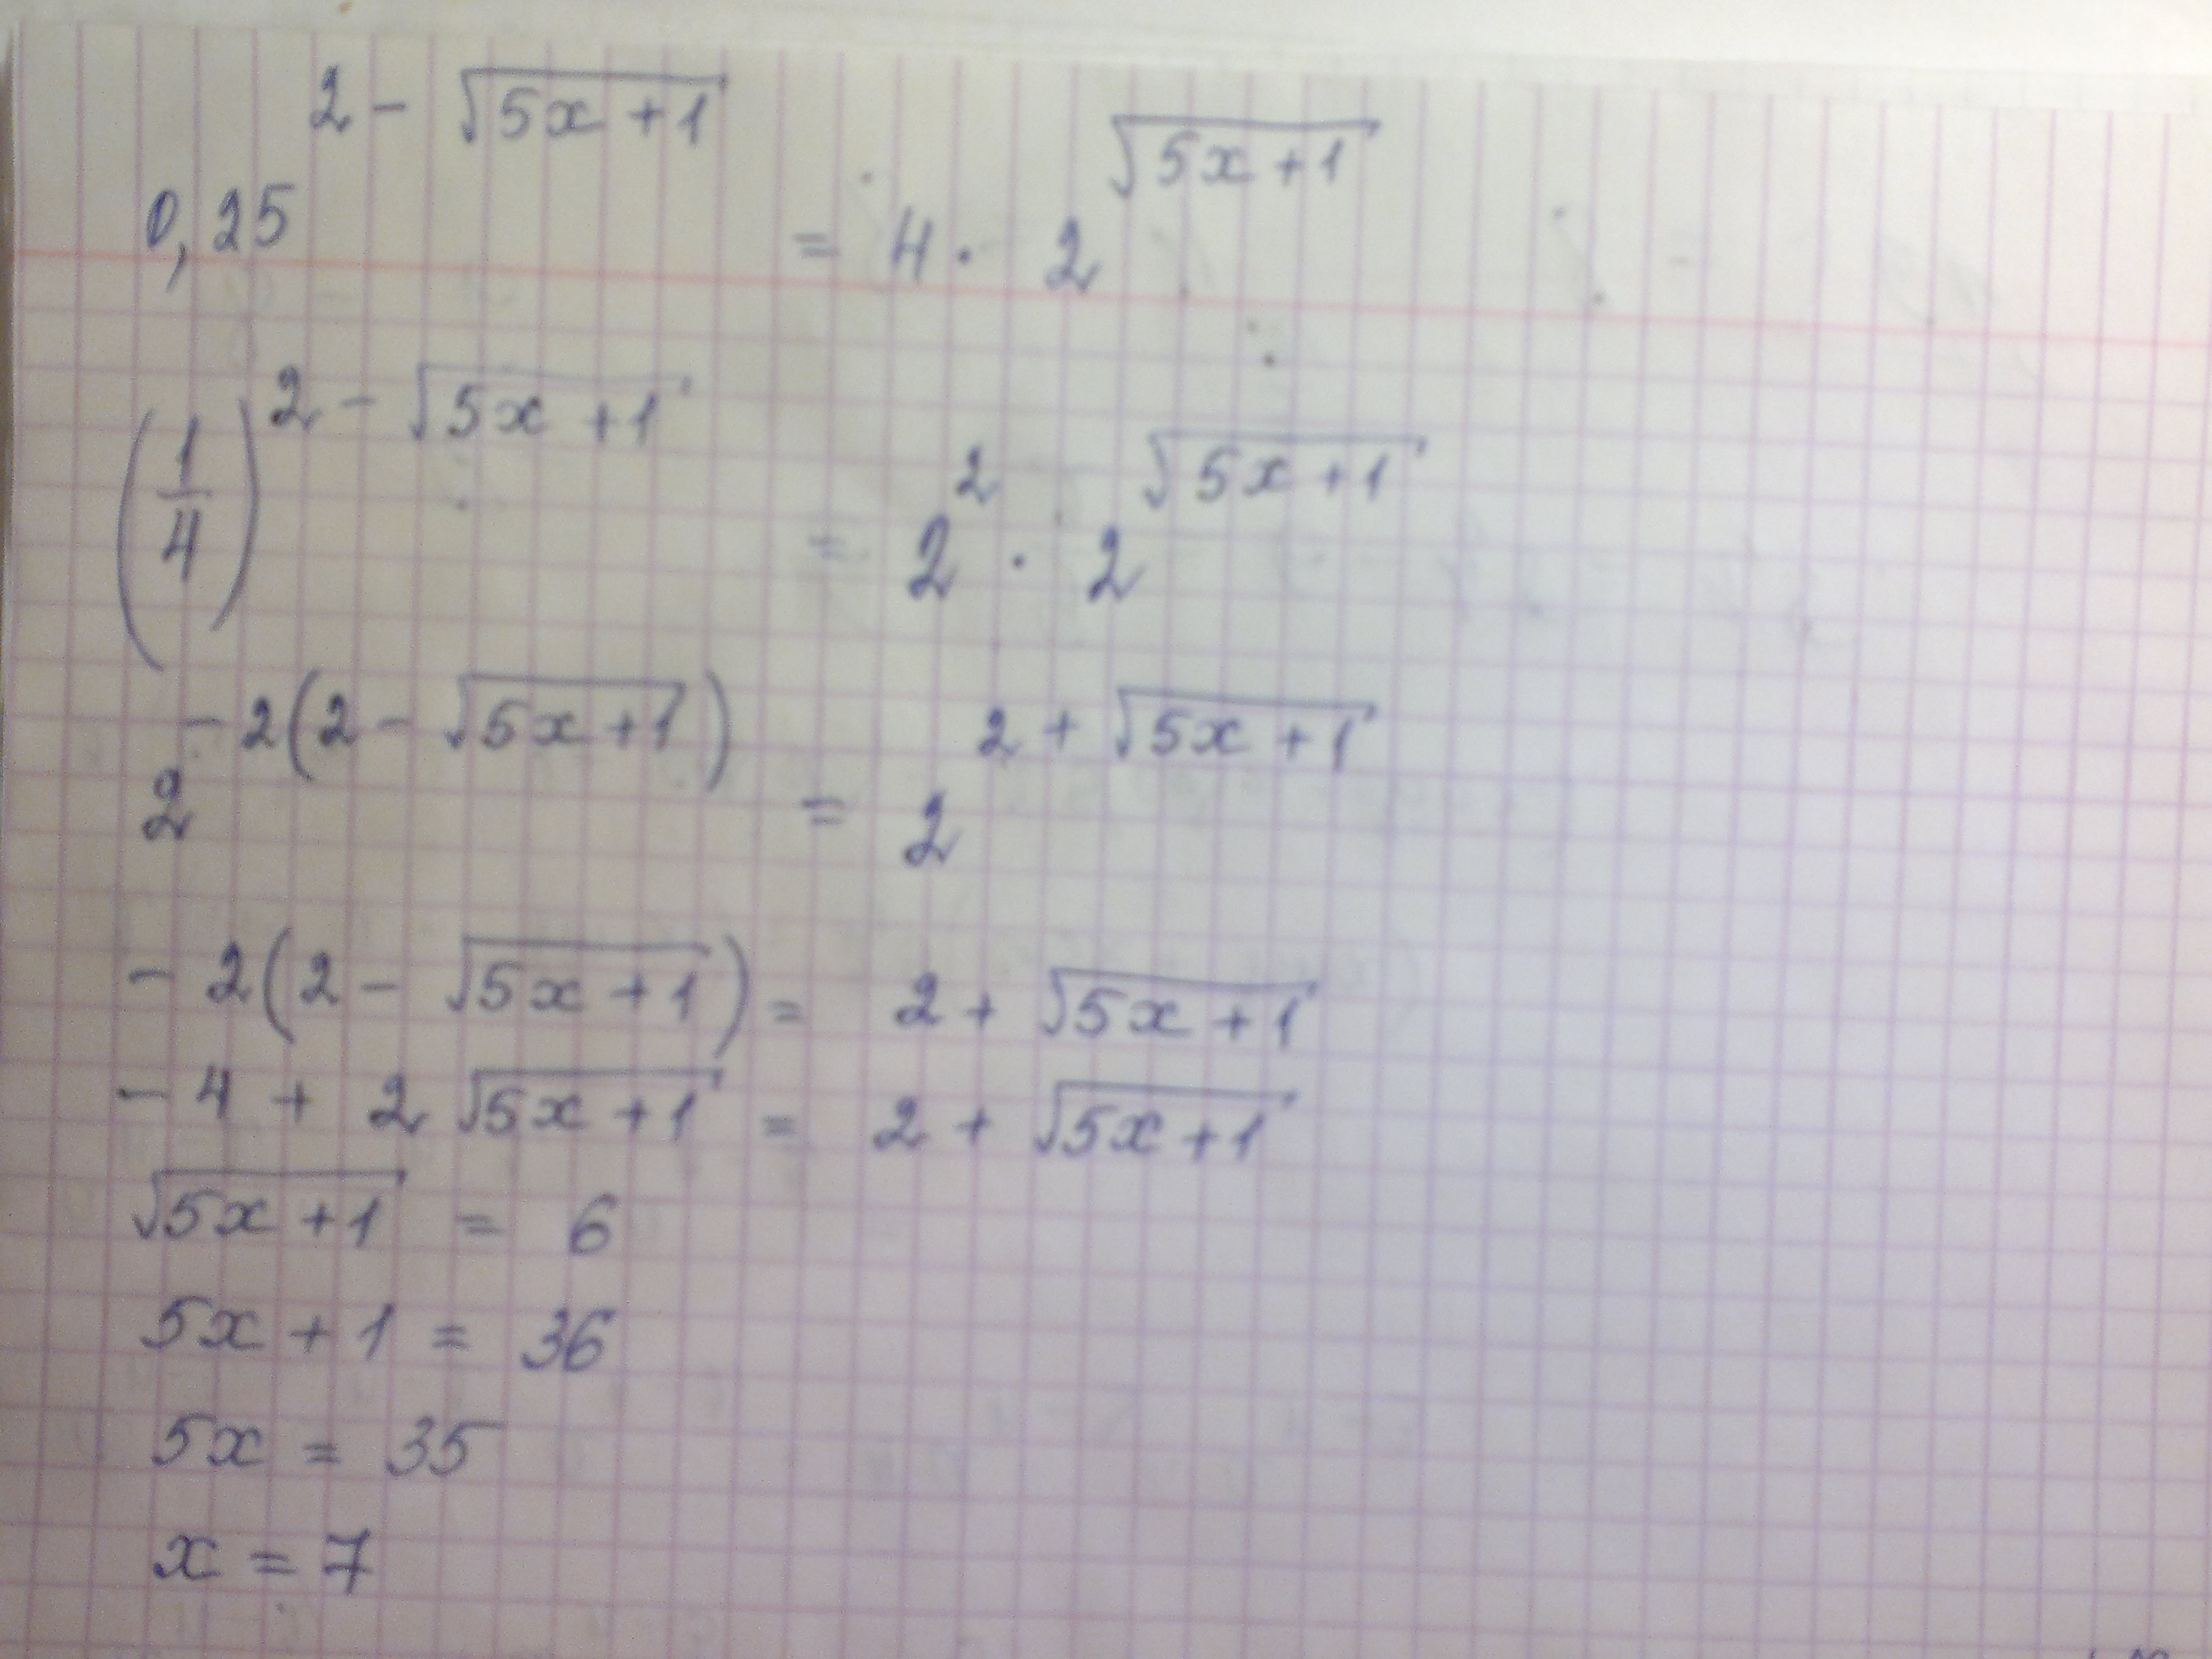 0,25^{2 - √(5x + 1)} = 4 · 2^{√(5x + 1)}
(1/4)^{2 - √(5x + 1)} = 2^2 · 2^{√(5x + 1)}
2^{-2(2 - √(5x + 1))} = 2^{2 + √(5x + 1)}
-2(2 - √(5x + 1)) = 2 + √(5x + 1)
-4 + 2√(5x + 1) = 2 + √(5x + 1)
√(5x + 1) = 6
5x + 1 = 36
5x = 35
x = 7